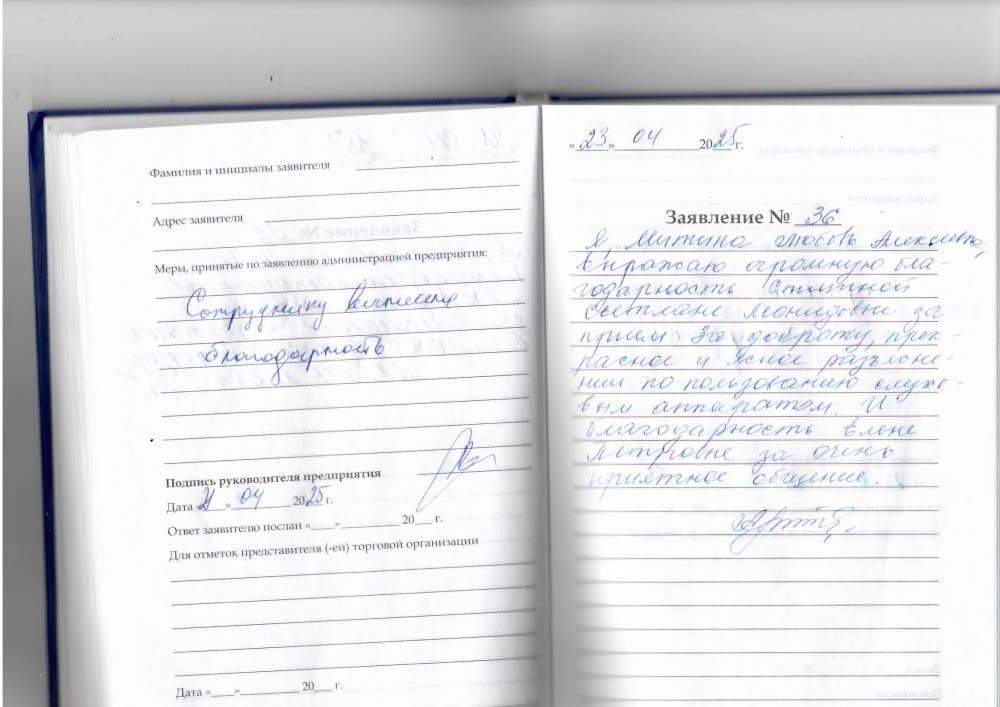 Фамилия и инициалы заявителя
Адрес заявителя
Меры, принятые по заявлению администрацией предприятия:
Сотруднику вынесена
благодарность
Подпись руководителя предприятия
Дата «21» 04 2025 г.
Ответ заявителю послан «___»__________ 20___ г.
Для отметок представителя (-ей) торговой организации
Дата «___»__________ 20___ г.
«23» 04 2025г.
Заявление № 36
Я, Митина Любовь Алексеевна,
выражаю огромную бла-
годарность
Светлане Леонидовне за
прием. За доброту, прек-
расное и ясное разъясне-
нии по пользованию слухо-
вым аппаратом. И
благодарность Елене
Петровне за очень
приятное общение.